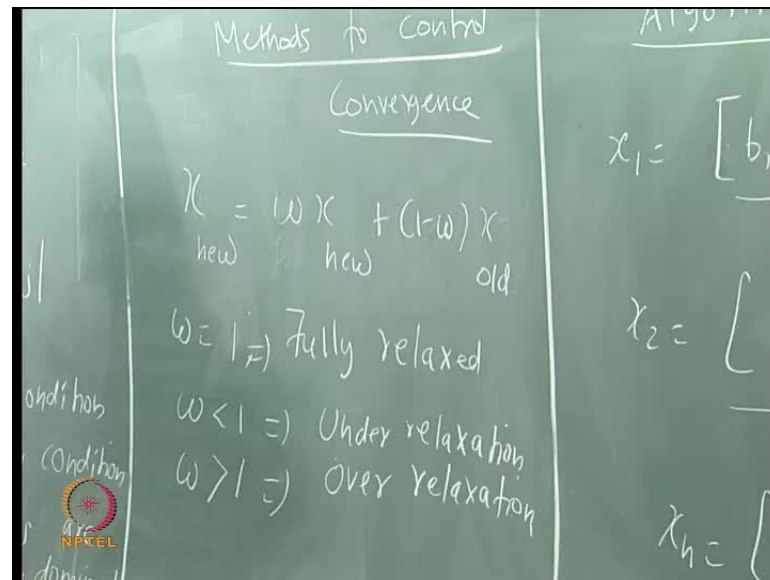 Methods to Control
Convergence
x new = ω x new + (1-ω) x old
ω = 1 => Fully relaxed
ω < 1 => Under relaxation
ω > 1 => Over relaxation
ondition
condition
are
NPTEL
x1 = [ b
x2 = [
xn = [